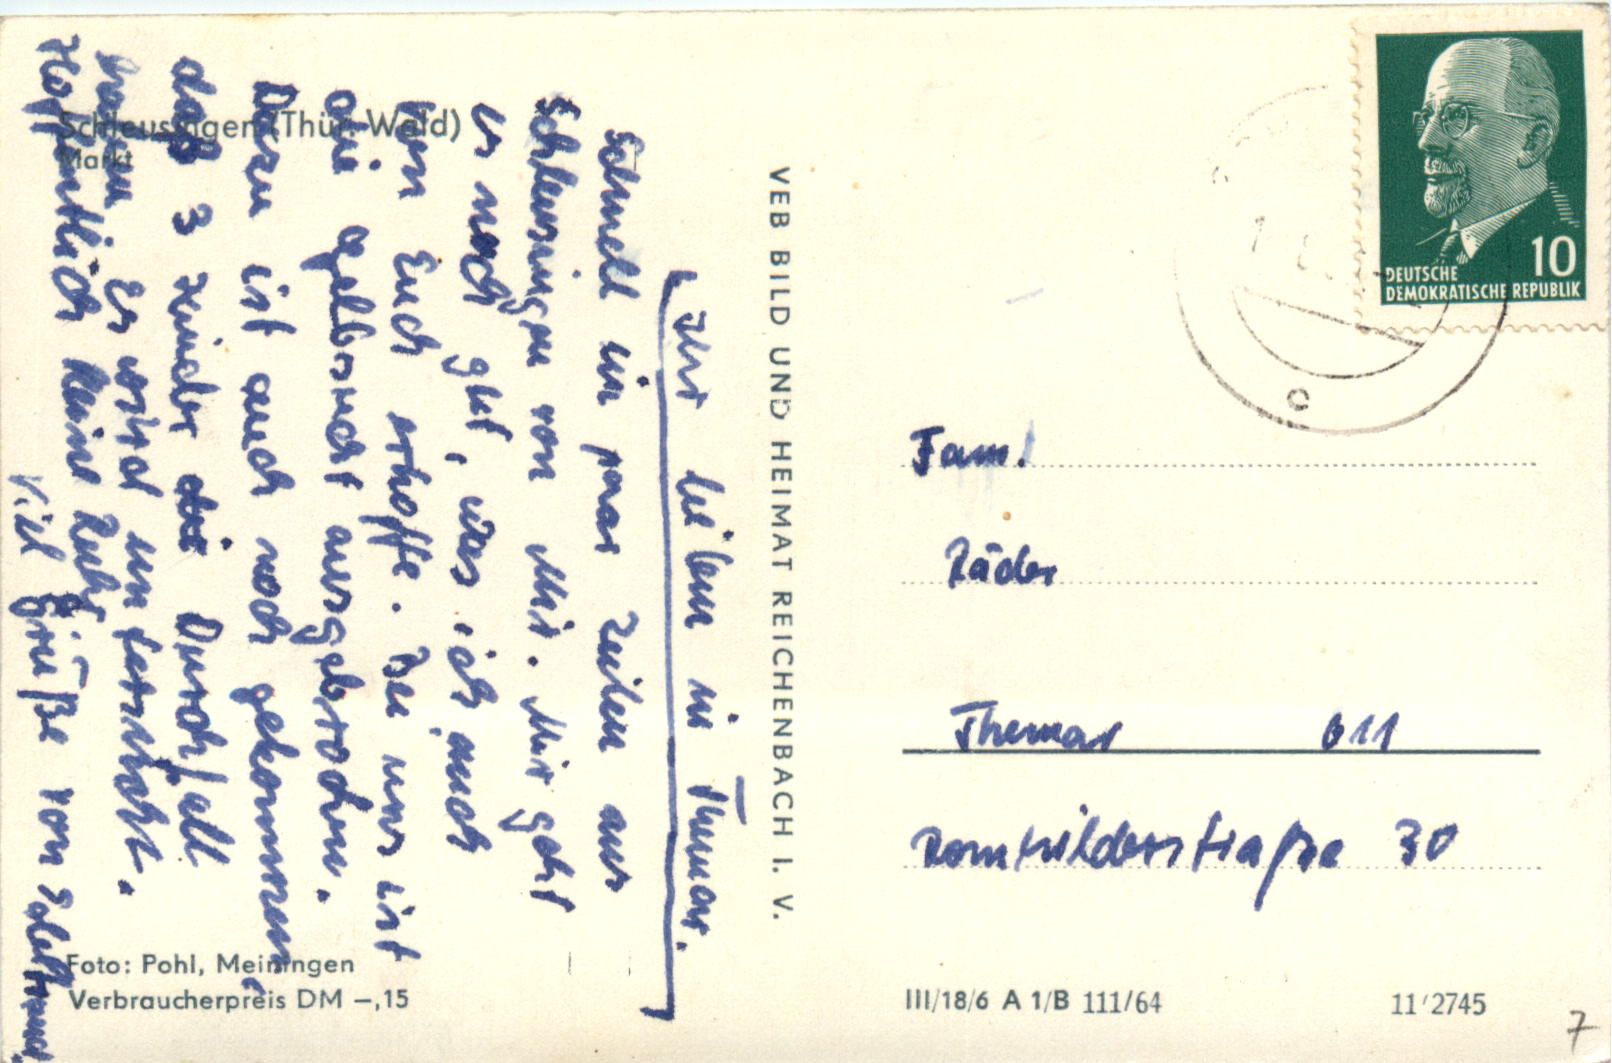 Schleusingen (Thür. Wald)
Markt
Ihr lieben in Themar.
Schnell ein paar Zeilen aus
Schleusingen von Mir. Mir geht
es noch gut, was ich auch
von Euch erhoffe. Bei uns ist
die gelbsucht ausgebrochen.
Dazu ist auch noch gekommen,
daß 3 Kinder Durchfall
haben. Es wird untersucht.
Hoffentlich keine Ruhr
Viel Grüße von
Foto: Pohl, Meiningen
Verbraucherpreis DM –,15
VEB BILD UND HEIMAT REICHENBACH I. V.
10
DEUTSCHE
DEMOKRATISCHE REPUBLIK
Fam.
Räder
Themar 611
Römhilderstraße 30
III/18/6 A 1/B 111/64
11/2745
7